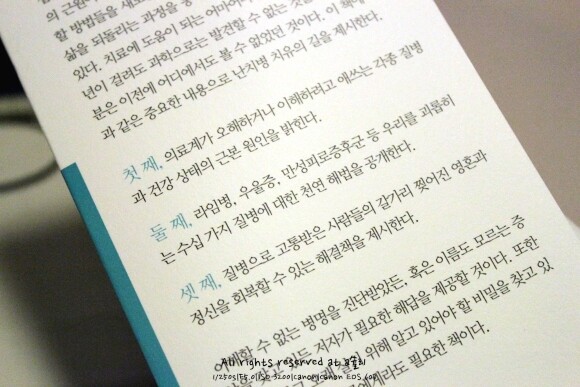 의 근원
할 방법들을 새로
삶을 되돌리는 과정을
있다. 치료에 도움이 되는 어마어마
년이 걸려도 과학으로는 발견할 수 없는 것
분은 이전에 어디에서도 볼 수 없었던 것이다. 이 책에
과 같은 중요한 내용으로 난치병 치유의 길을 제시한다.
첫째, 의료계가 오해하거나 이해하려고 애쓰는 각종 질병
과 건강 상태의 근본 원인을 밝힌다.
둘째, 라임병, 우울증, 만성피로증후군 등 우리를 괴롭히
는 수십 가지 질병에 대한 천연 해법을 공개한다.
셋째, 질병으로 고통받은 사람들의 갈가리 찢어진 영혼과
정신을 회복할 수 있는 해결책을 제시한다.
이해할 수 없는 병명을 진단받았든, 혹은 이름도 모르는 증
저자가 필요한 해답을 제공할 것이다. 또한
위해 알고 있어야 할 비밀을 찾고 있
에게라도 필요한 책이다.
All rights reserved at
1/250s|F5.0|ISO-3200|canon|canon EOS 60D